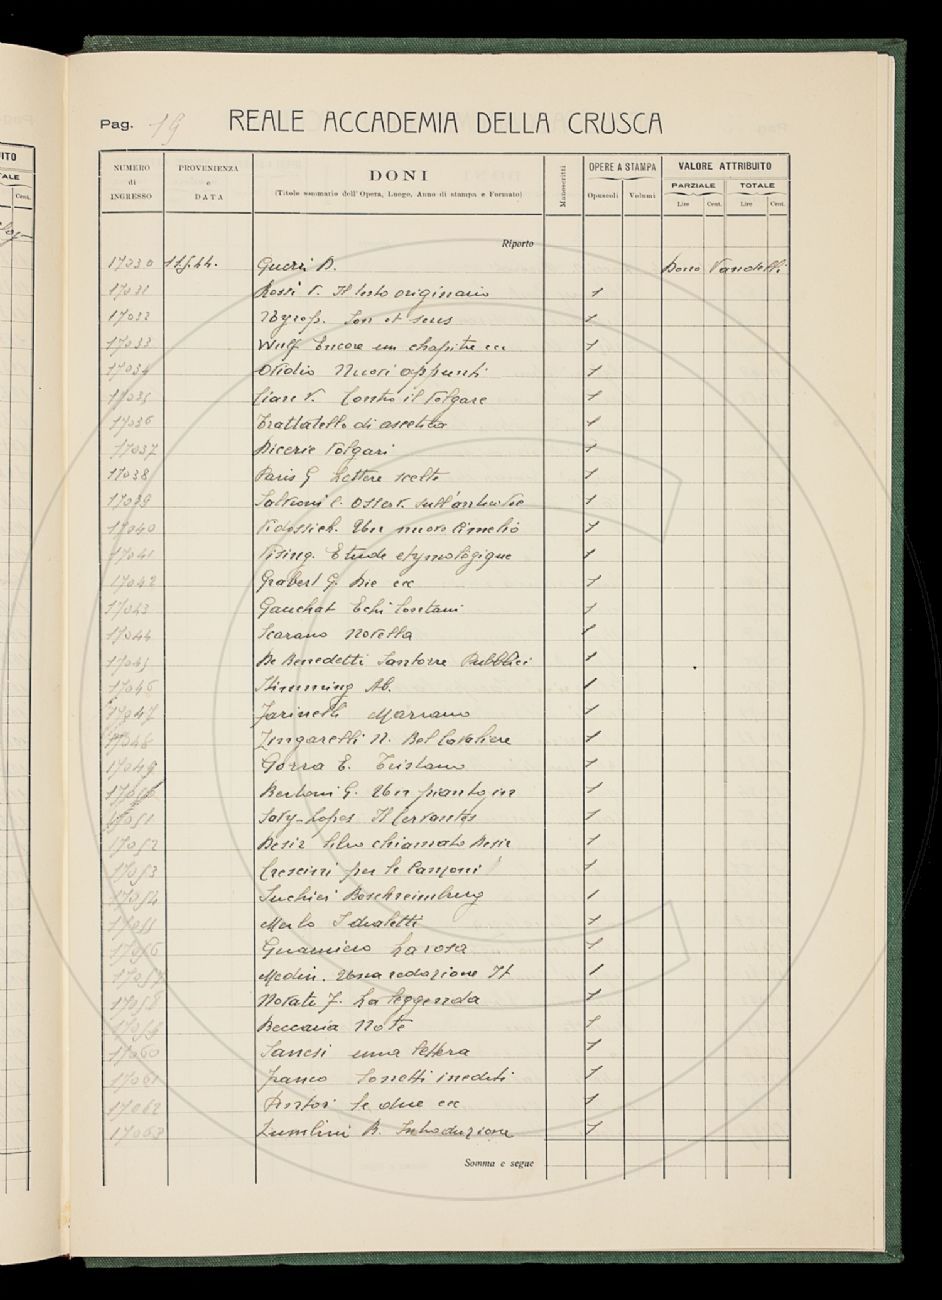 Pag. 19 REALE ACCADEMIA DELLA CRUSCA
NUMERO di INGRESSO
PROVENIENZA e DATA
DONI
(Titolo sommario dell'Opera, Luogo, Anno di stampa e Formato)
Manoscritti
OPERE A STAMPA
Opuscoli Volumi
VALORE ATTRIBUITO
PARZIALE TOTALE
Lire Cent. Lire Cent.
Riporto
17030 11.5.44. Guerri D. Dono Vandelli
17031 Rossi V. Il testo originario 1
17032 Nyrop. Son et sens 1
17033 Wulf Encore un chapitre ecc 1
17034 Ovidio Nuovi appunti 1
17035 Cian V. Contro il volgare 1
17036 Trattatello di ascetica 1
17037 Dicerie volgari 1
17038 Paris G Lettere scelte 1
17039 Salvioni C. Osserv. sull'antico 1
17040 Vidossich. Un nuovo Cimelio 1
17041 Vising. Etude etymologique 1
17042 Grabert G. Die ecc 1
17043 Gauchat Echi lontani 1
17044 Scarano Novella 1
17045 De Benedetti Santorre Pubblici 1
17046 Stimming Ab. 1
17047 Farinelli Marrano 1
17048 Zingarelli N. Bel Cavaliere 1
17049 Gorra E. Tristano 1
17050 Bertoni G. Un pianto in 1
17051 Savj-Lopez Il Cervantes 1
17052 Desir Libro chiamato Desir 1
17053 Crescini per le Canzoni 1
17054 Suchier 1
17055 Merlo I dialetti 1
17056 Guarnerio La rosa 1
17057 Medin. Una redazione It 1
17058 Novati F. La leggenda 1
17059 Beccaria Note 1
17060 Sanesi una lettera 1
17061 Franco Sonetti inediti 1
17062 Le due ecc 1
17063 Zumbini B. Introduzione 1
Somma e segue